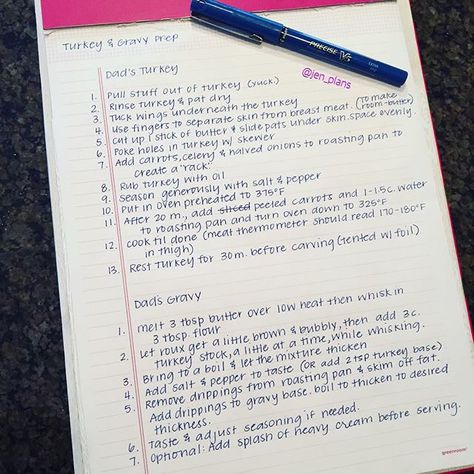 Turkey & Gravy Prep
PRECISE V5
@jen_plans
Dad's Turkey
1. Pull stuff out of turkey (yuck.)
2. Rinse turkey & pat dry
3. Tuck wings underneath the turkey
4. Use fingers to separate skin from breast meat. (To make room-butter)
5. Cut up 1 stick of butter & slide pats under skin. space evenly.
6. Poke holes in turkey w/ skewer
7. Add carrots, celery & halved onions to roasting pan to
create a 'rack'.
8. Rub turkey with oil
9. Season generously with salt & pepper
10. Put in oven preheated to 375°F
11. After 20 m., add sliced peeled carrots and 1-1.5 c. water
to roasting pan and turn oven down to 325°F
12. Cook til done (meat thermometer should read 170-180°F
in thigh)
13. Rest turkey for 30m. before carving (tented w/ foil)
Dad's Gravy
1. Melt 3 tbsp butter over low heat then whisk in
3 tbsp. flour.
2. Let roux get a little brown & bubbly, then add 3 c.
turkey stock, a little at a time, while whisking.
3. Bring to a boil & let the mixture thicken
4. Add salt & pepper to taste (OR add 2 tsp turkey base)
5. Remove drippings from roasting pan & skim off fat.
Add drippings to gravy base. boil to thicken to desired
thickness.
6. Taste & adjust seasoning if needed.
7. Optional: Add splash of heavy cream before serving.
greenroom